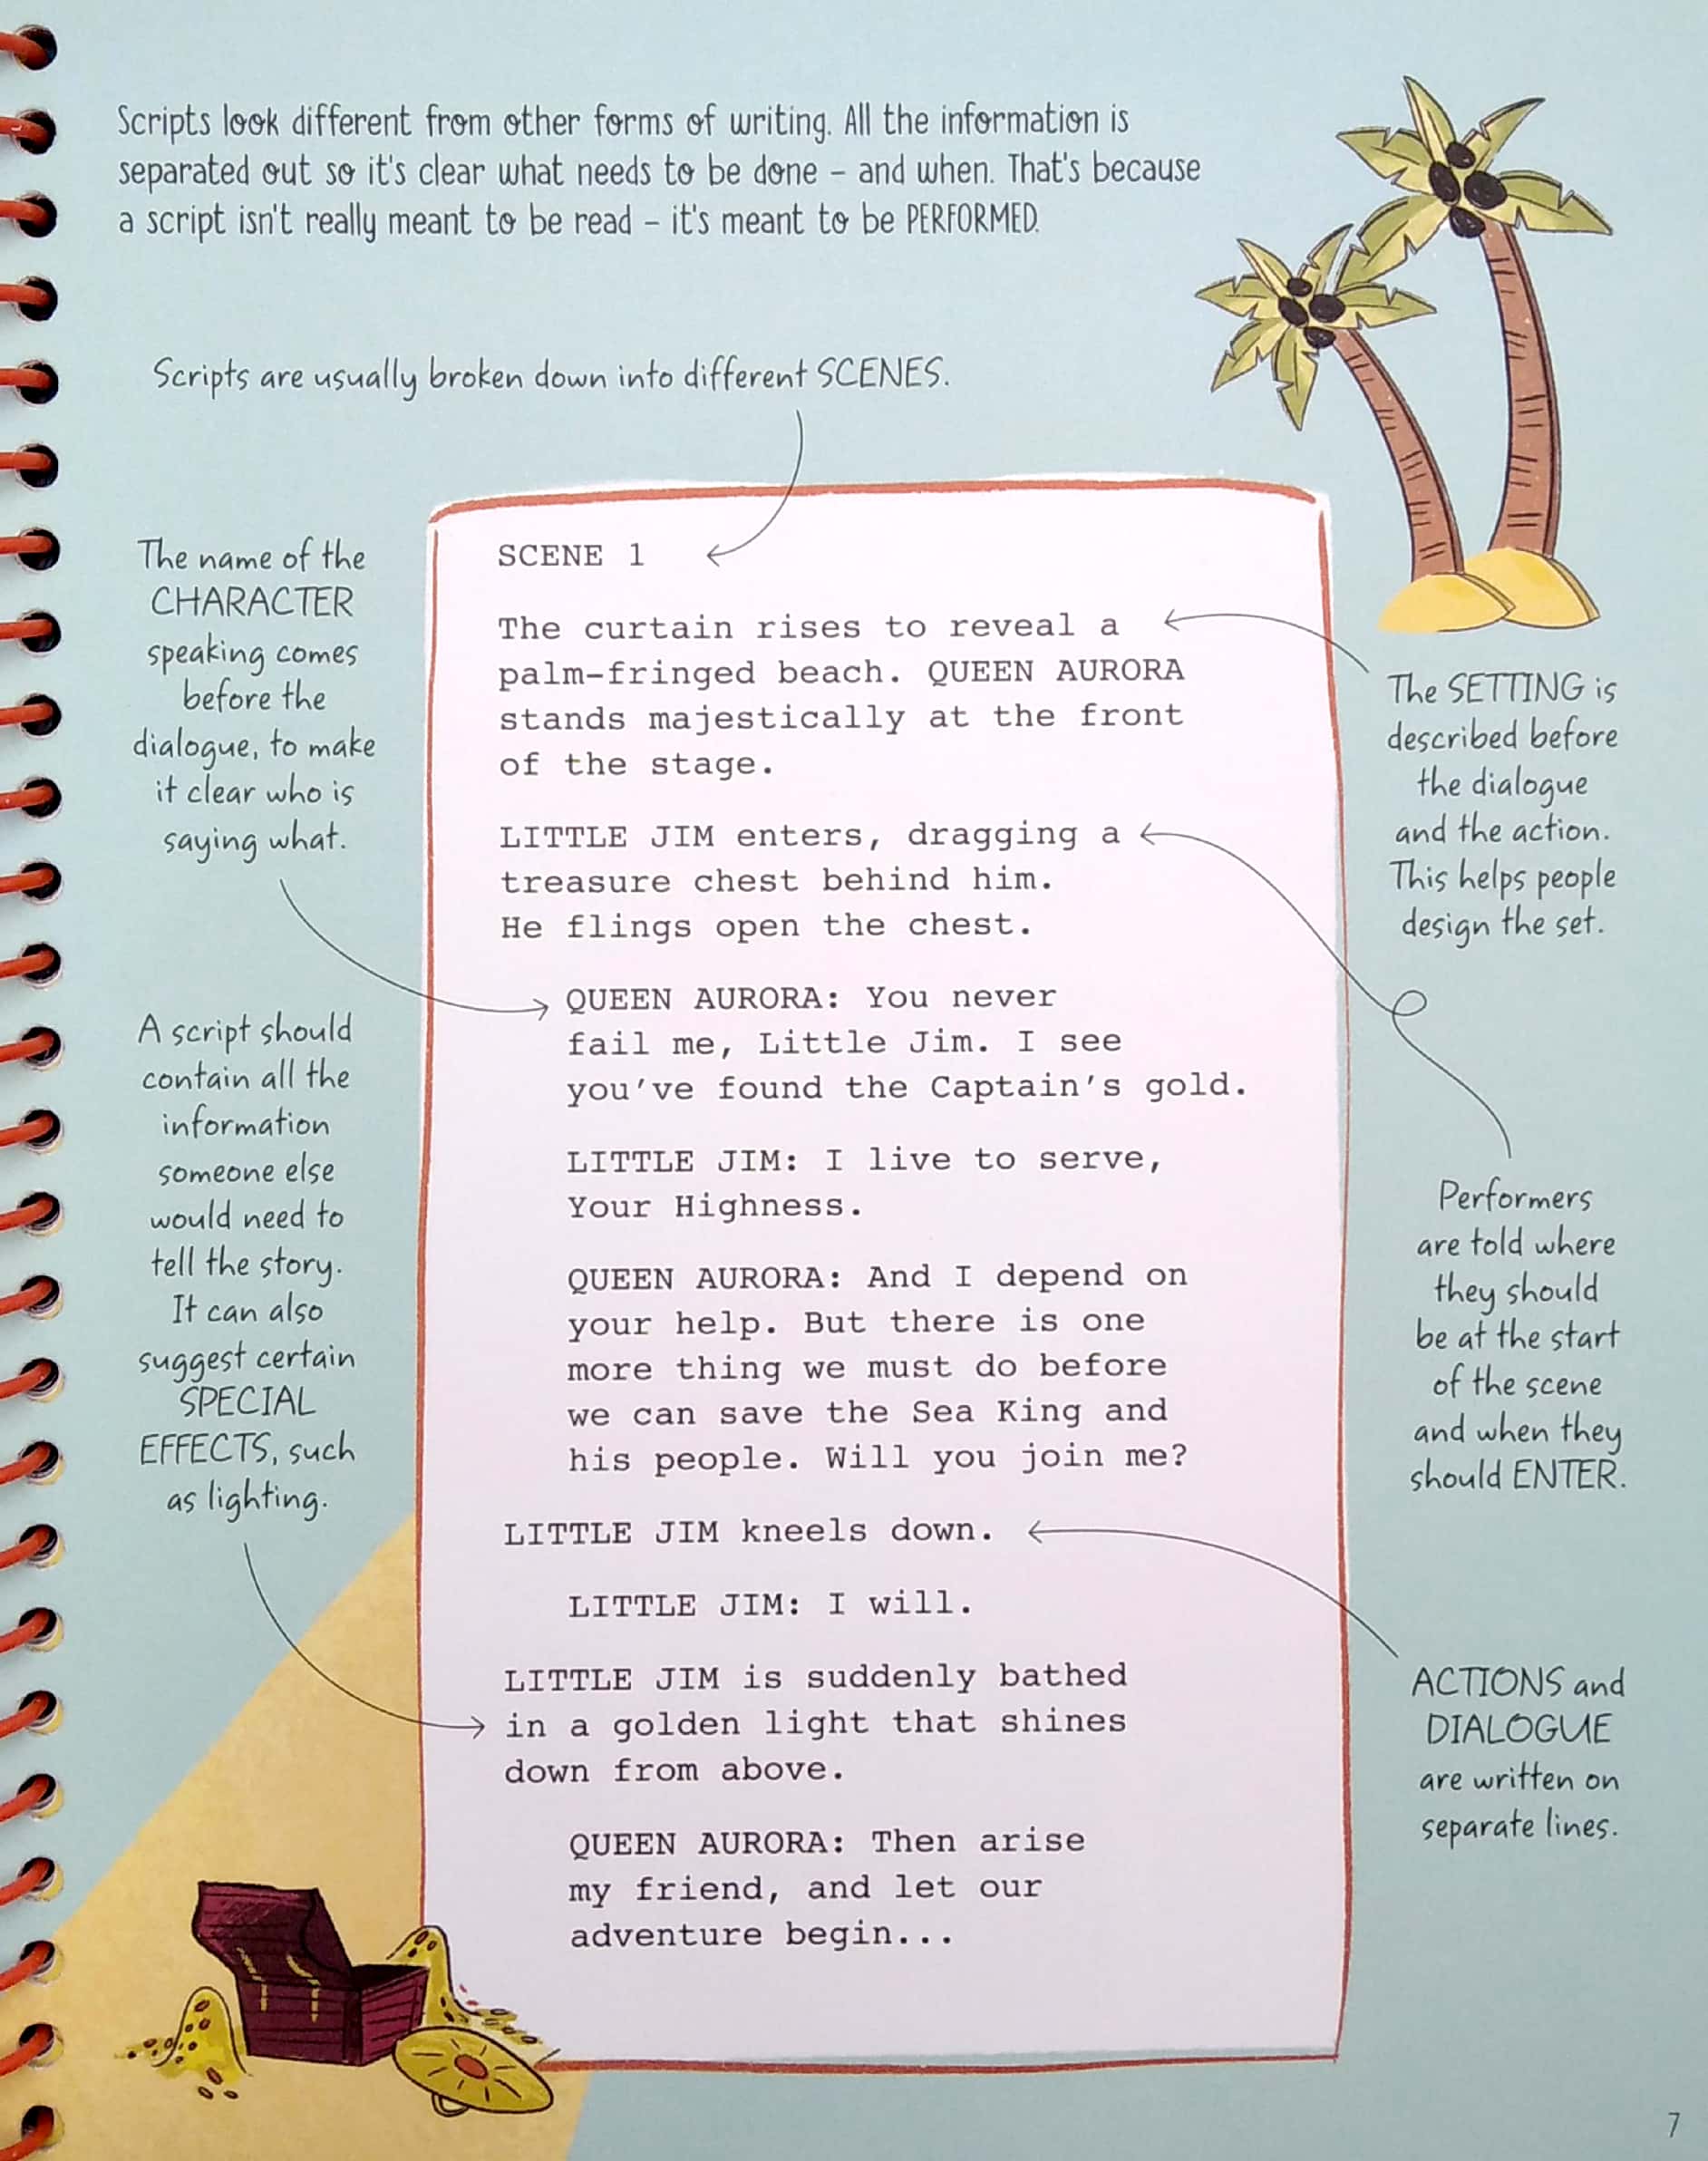 Scripts look different from other forms of writing. All the information is
separated out so it's clear what needs to be done – and when. That's because
a script isn't really meant to be read – it's meant to be PERFORMED.
Scripts are usually broken down into different SCENES.
The name of the
CHARACTER
speaking comes
before the
dialogue, to make
it clear who is
saying what.
A script should
contain all the
information
someone else
would need to
tell the story.
It can also
suggest certain
SPECIAL
EFFECTS, such
as lighting.
SCENE 1
The curtain rises to reveal a
palm-fringed beach. QUEEN AURORA
stands majestically at the front
of the stage.
LITTLE JIM enters, dragging a
treasure chest behind him.
He flings open the chest.
QUEEN AURORA: You never
fail me, Little Jim. I see
you've found the Captain's gold.
LITTLE JIM: I live to serve,
Your Highness.
QUEEN AURORA: And I depend on
your help. But there is one
more thing we must do before
we can save the Sea King and
his people. Will you join me?
LITTLE JIM kneels down.
LITTLE JIM: I will.
LITTLE JIM is suddenly bathed
in a golden light that shines
down from above.
QUEEN AURORA: Then arise
my friend, and let our
adventure begin...
The SETTING is
described before
the dialogue
and the action.
This helps people
design the set.
Performers
are told where
they should
be at the start
of the scene
and when they
should ENTER.
ACTIONS and
DIALOGUE
are written on
separate lines.
7